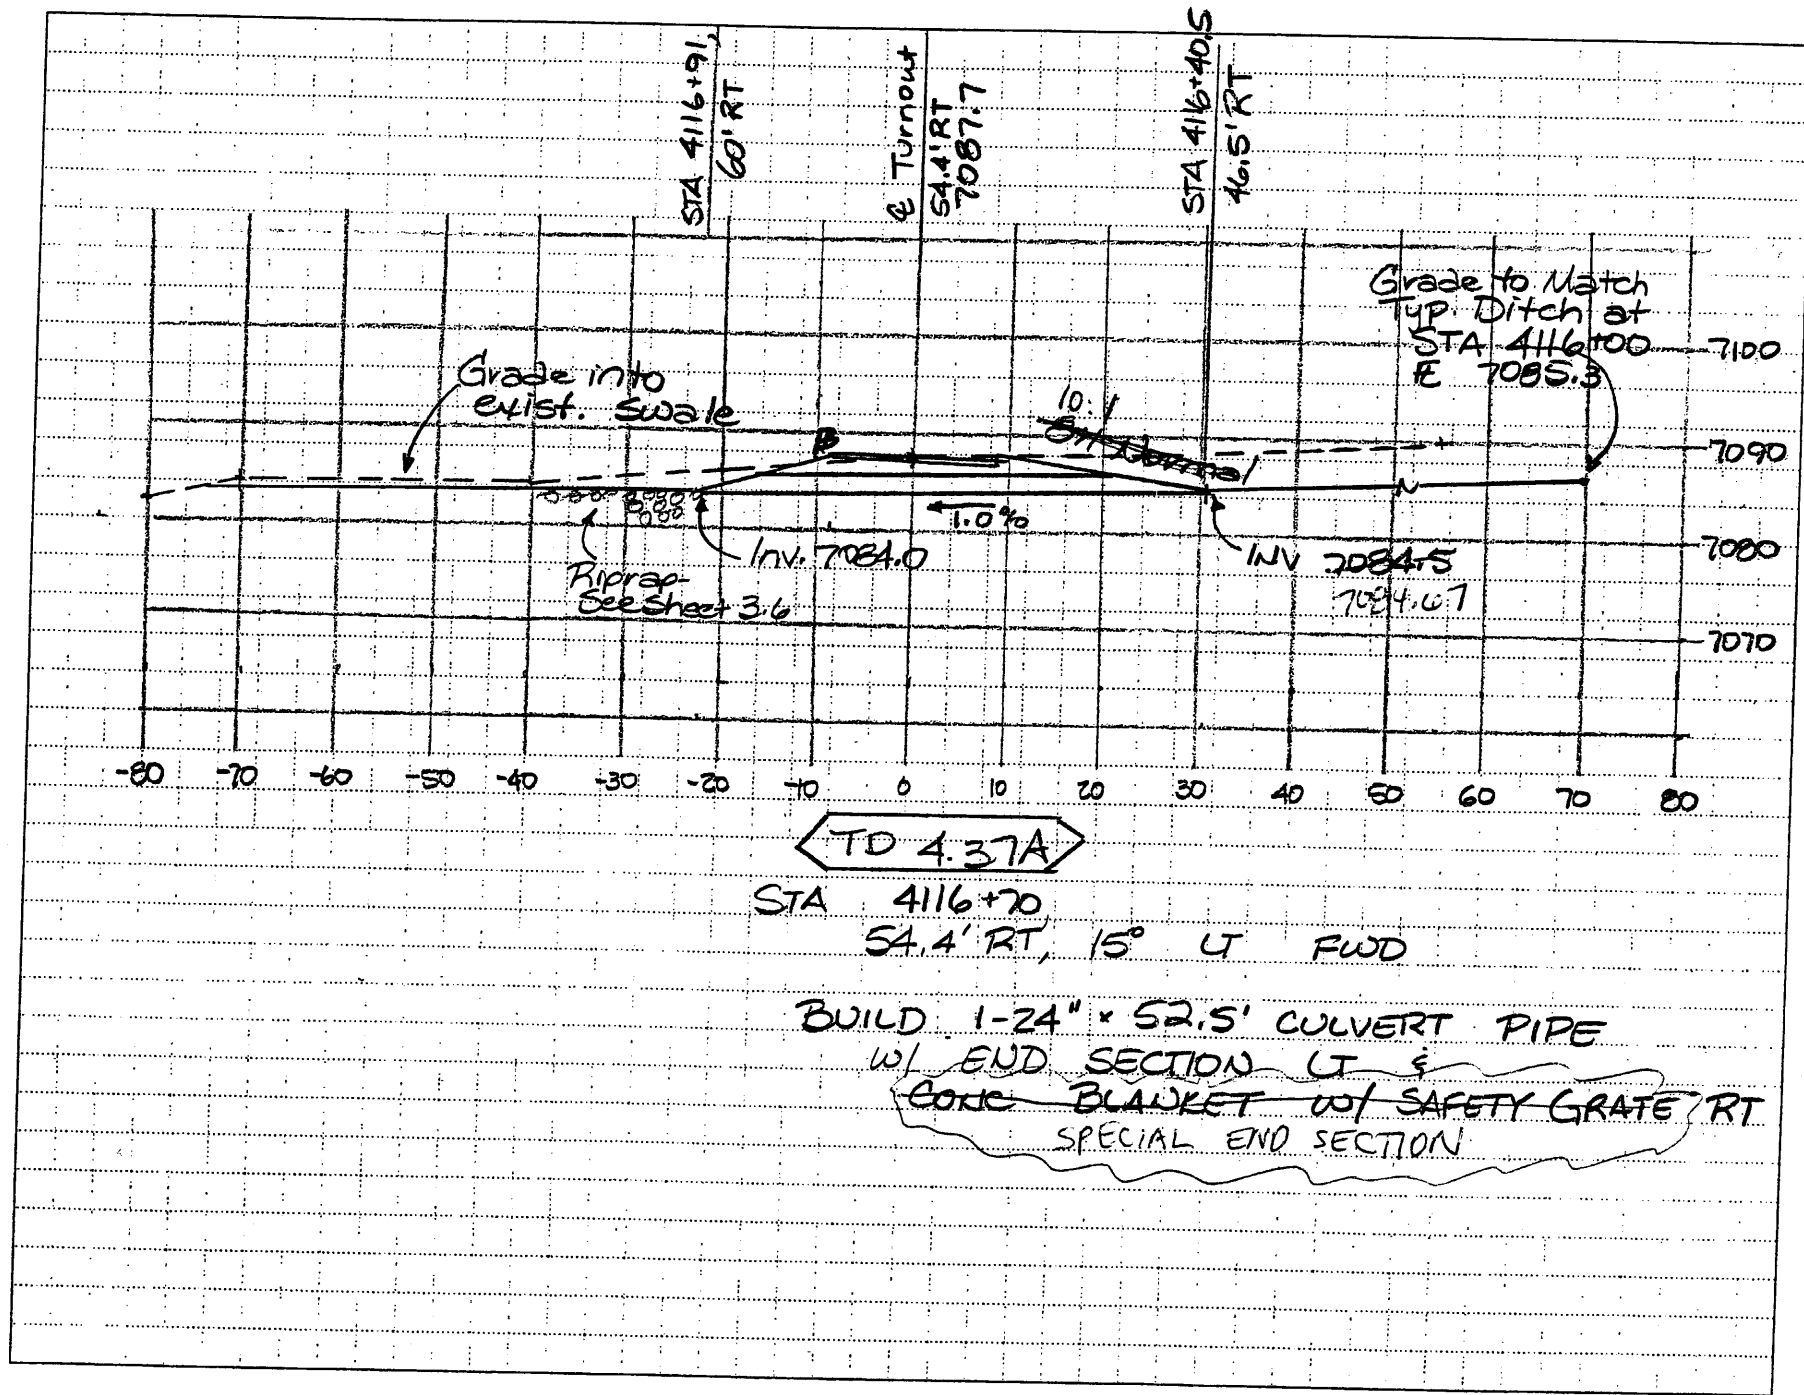 STA 4116+91,
60' RT
℄ Turnout
54.4' RT
7087.7
STA 4116+40.5
46.5' RT
Grade to Match
Typ. Ditch at
STA 4116+00
7085.3
7100
Grade into
exist. swale
10:1
8:1 Normal
7090
1.0%
7080
Inv. 7084.0
INV 7084.5
7084.67
Riprap-
See Sheet 3.6
7070
-80 -70 -60 -50 -40 -30 -20 -10 0 10 20 30 40 50 60 70 80
TD 4.37A
STA 4116+70
54.4' RT, 15° LT FWD
BUILD 1-24" x 52.5' CULVERT PIPE
W/ END SECTION LT &
CONC BLANKET W/ SAFETY GRATE RT
SPECIAL END SECTION